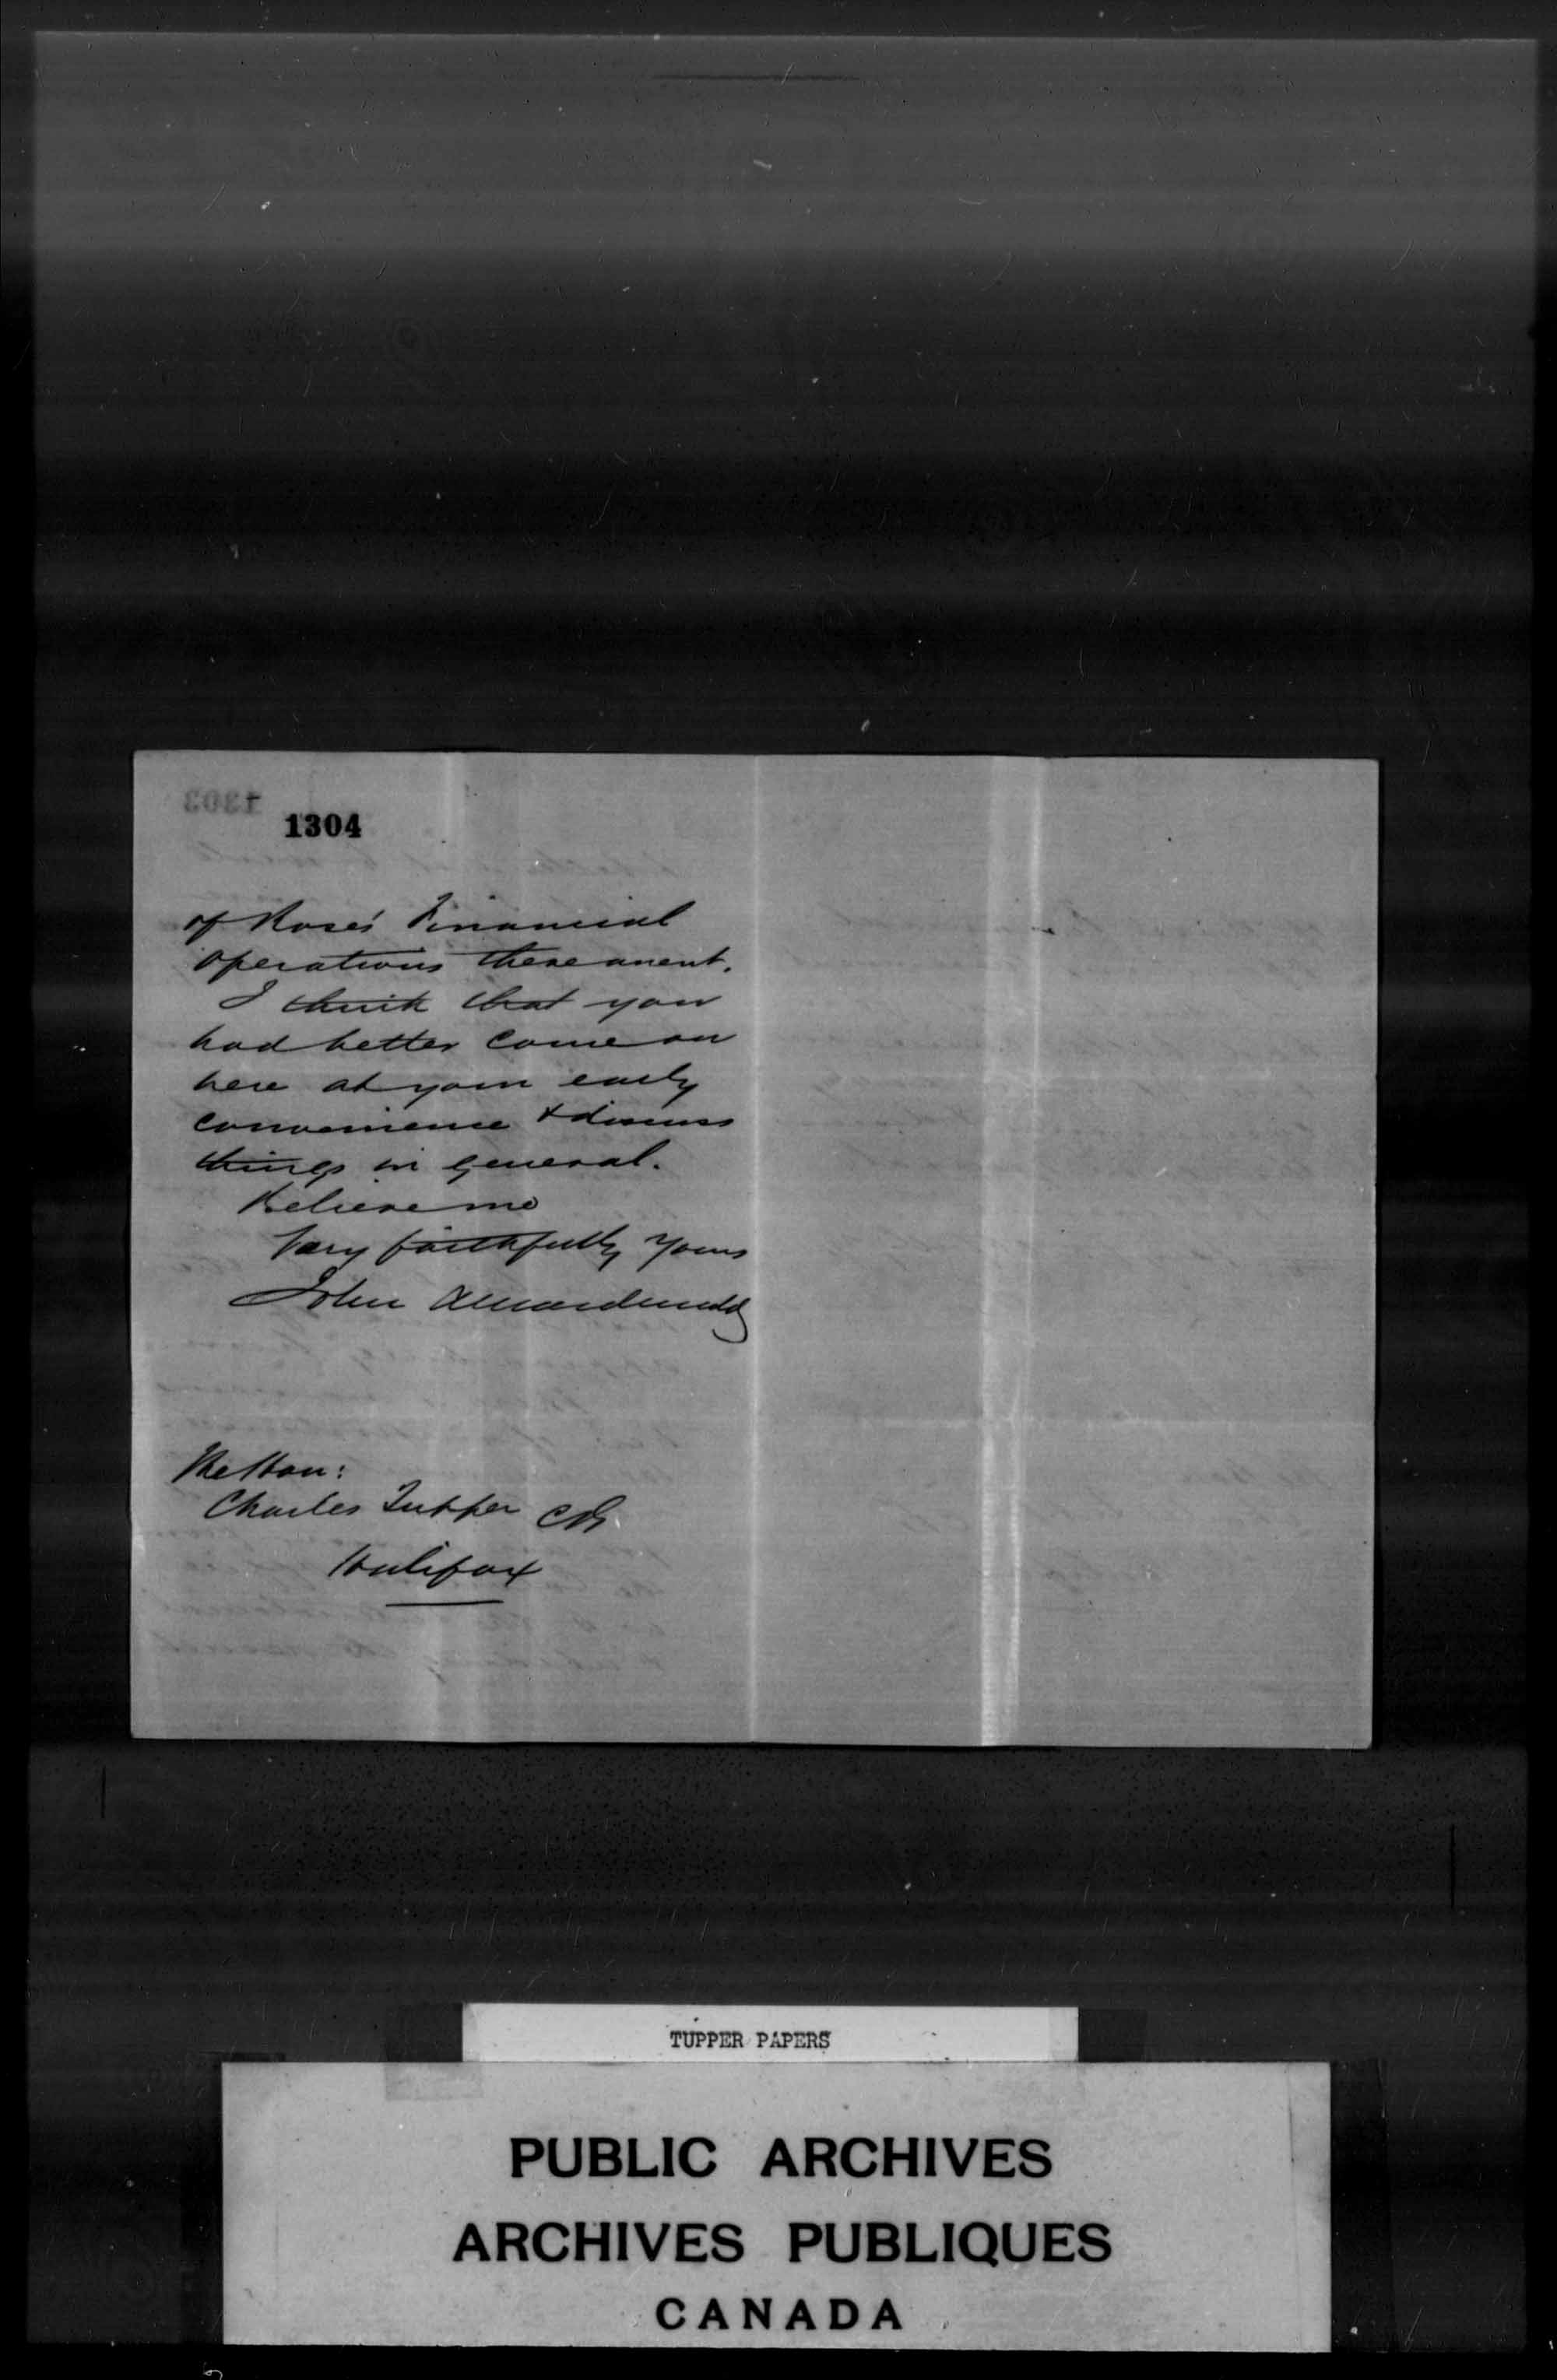 1304
of Rose's Financial
operations thereanent.
I think that you
had better come on
here at your early
convenience & discuss
things in general.
Believe me
Very faithfully Yours
John A Macdonald
The Hon:
Charles Tupper CB
Halifax
TUPPER PAPERS
PUBLIC ARCHIVES
ARCHIVES PUBLIQUES
CANADA